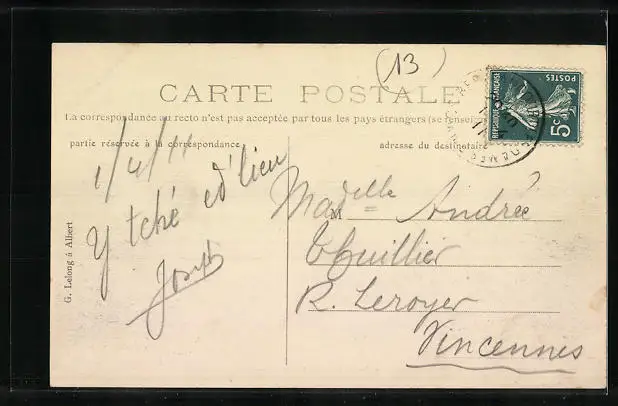 (13)
CARTE POSTALE
La correspondance au recto n'est pas acceptée par tous les pays étrangers
partie réservée à la correspondance
adresse du destinataire
REPUBLIQUE FRANÇAISE
POSTES
5c
1/4/11
Y tché ed'lieu
Joseph
G. Lelong à Albert
Madelle Andrée
R. Leroyer
Vincennes